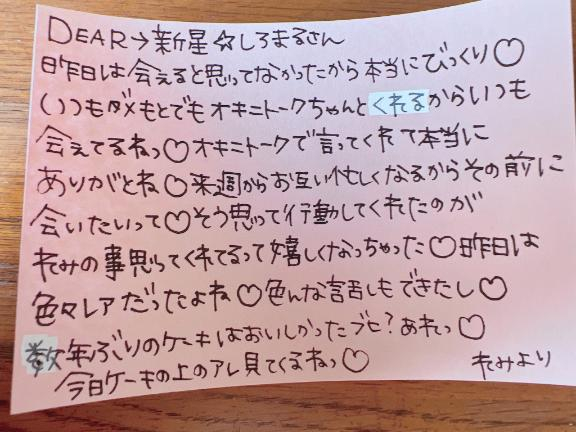 DEAR→新星☆しろまるさん
昨日は会えると思ってなかったから本当にびっくり♡
いつもダメもとでもオキニトークちゃんとくれるからいつも
会えてるねっ♡オキニトークで言ってくれて本当に
ありがとね♡来週からお互い忙しくなるからその前に
会いたいって♡そう思って行動してくれたのが
れみの事思ってくれてるって嬉しくなっちゃった♡昨日は
色々レアだったよね♡色んな話しもできたし♡
数年ぶりのケーキはおいしかったブヒ?あれっ♡
今日ケーキの上のアレ見てくるねっ♡
れみより